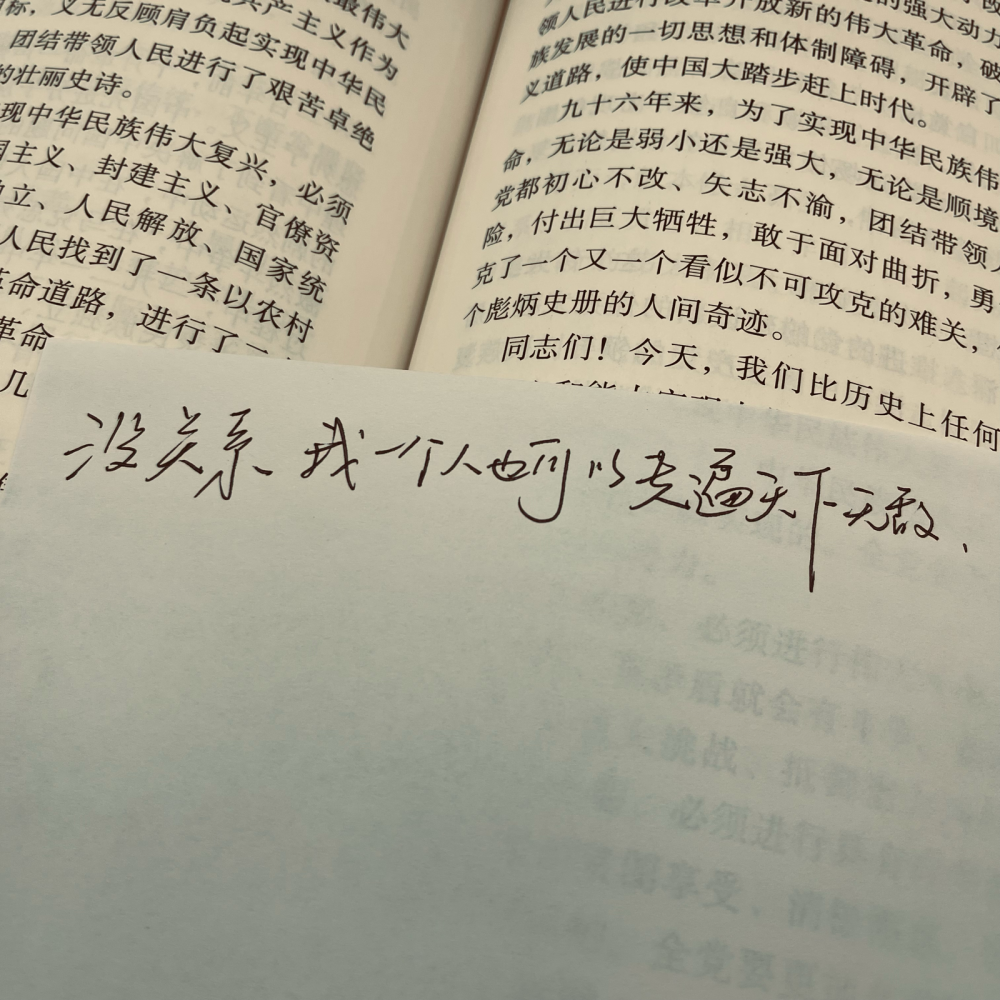 最伟大
产主义作为
目标，义无反顾肩负起实现中华民
团结带领人民进行了艰苦卓绝
的壮丽史诗。
现中华民族伟大复兴，必须
国主义、封建主义、官僚资
独立、人民解放、国家统
人民找到了一条以农村
革命道路，进行了
革命
几
的强大动力
领人民进行改革开放新的伟大革命，破
族发展的一切思想和体制障碍，开辟了
义道路，使中国大踏步赶上时代。
九十六年来，为了实现中华民族伟
命，无论是弱小还是强大，无论是顺境
党都初心不改、矢志不渝，团结带领人
险，付出巨大牺牲，敢于面对曲折，勇
克了一个又一个看似不可攻克的难关，
个彪炳史册的人间奇迹。
同志们！今天，我们比历史上任何
没关系、我一个人也可以走遍天下无敌、
必须进行
盾就会有
挑战、抵
必须进行具有
图享受、消
全党要